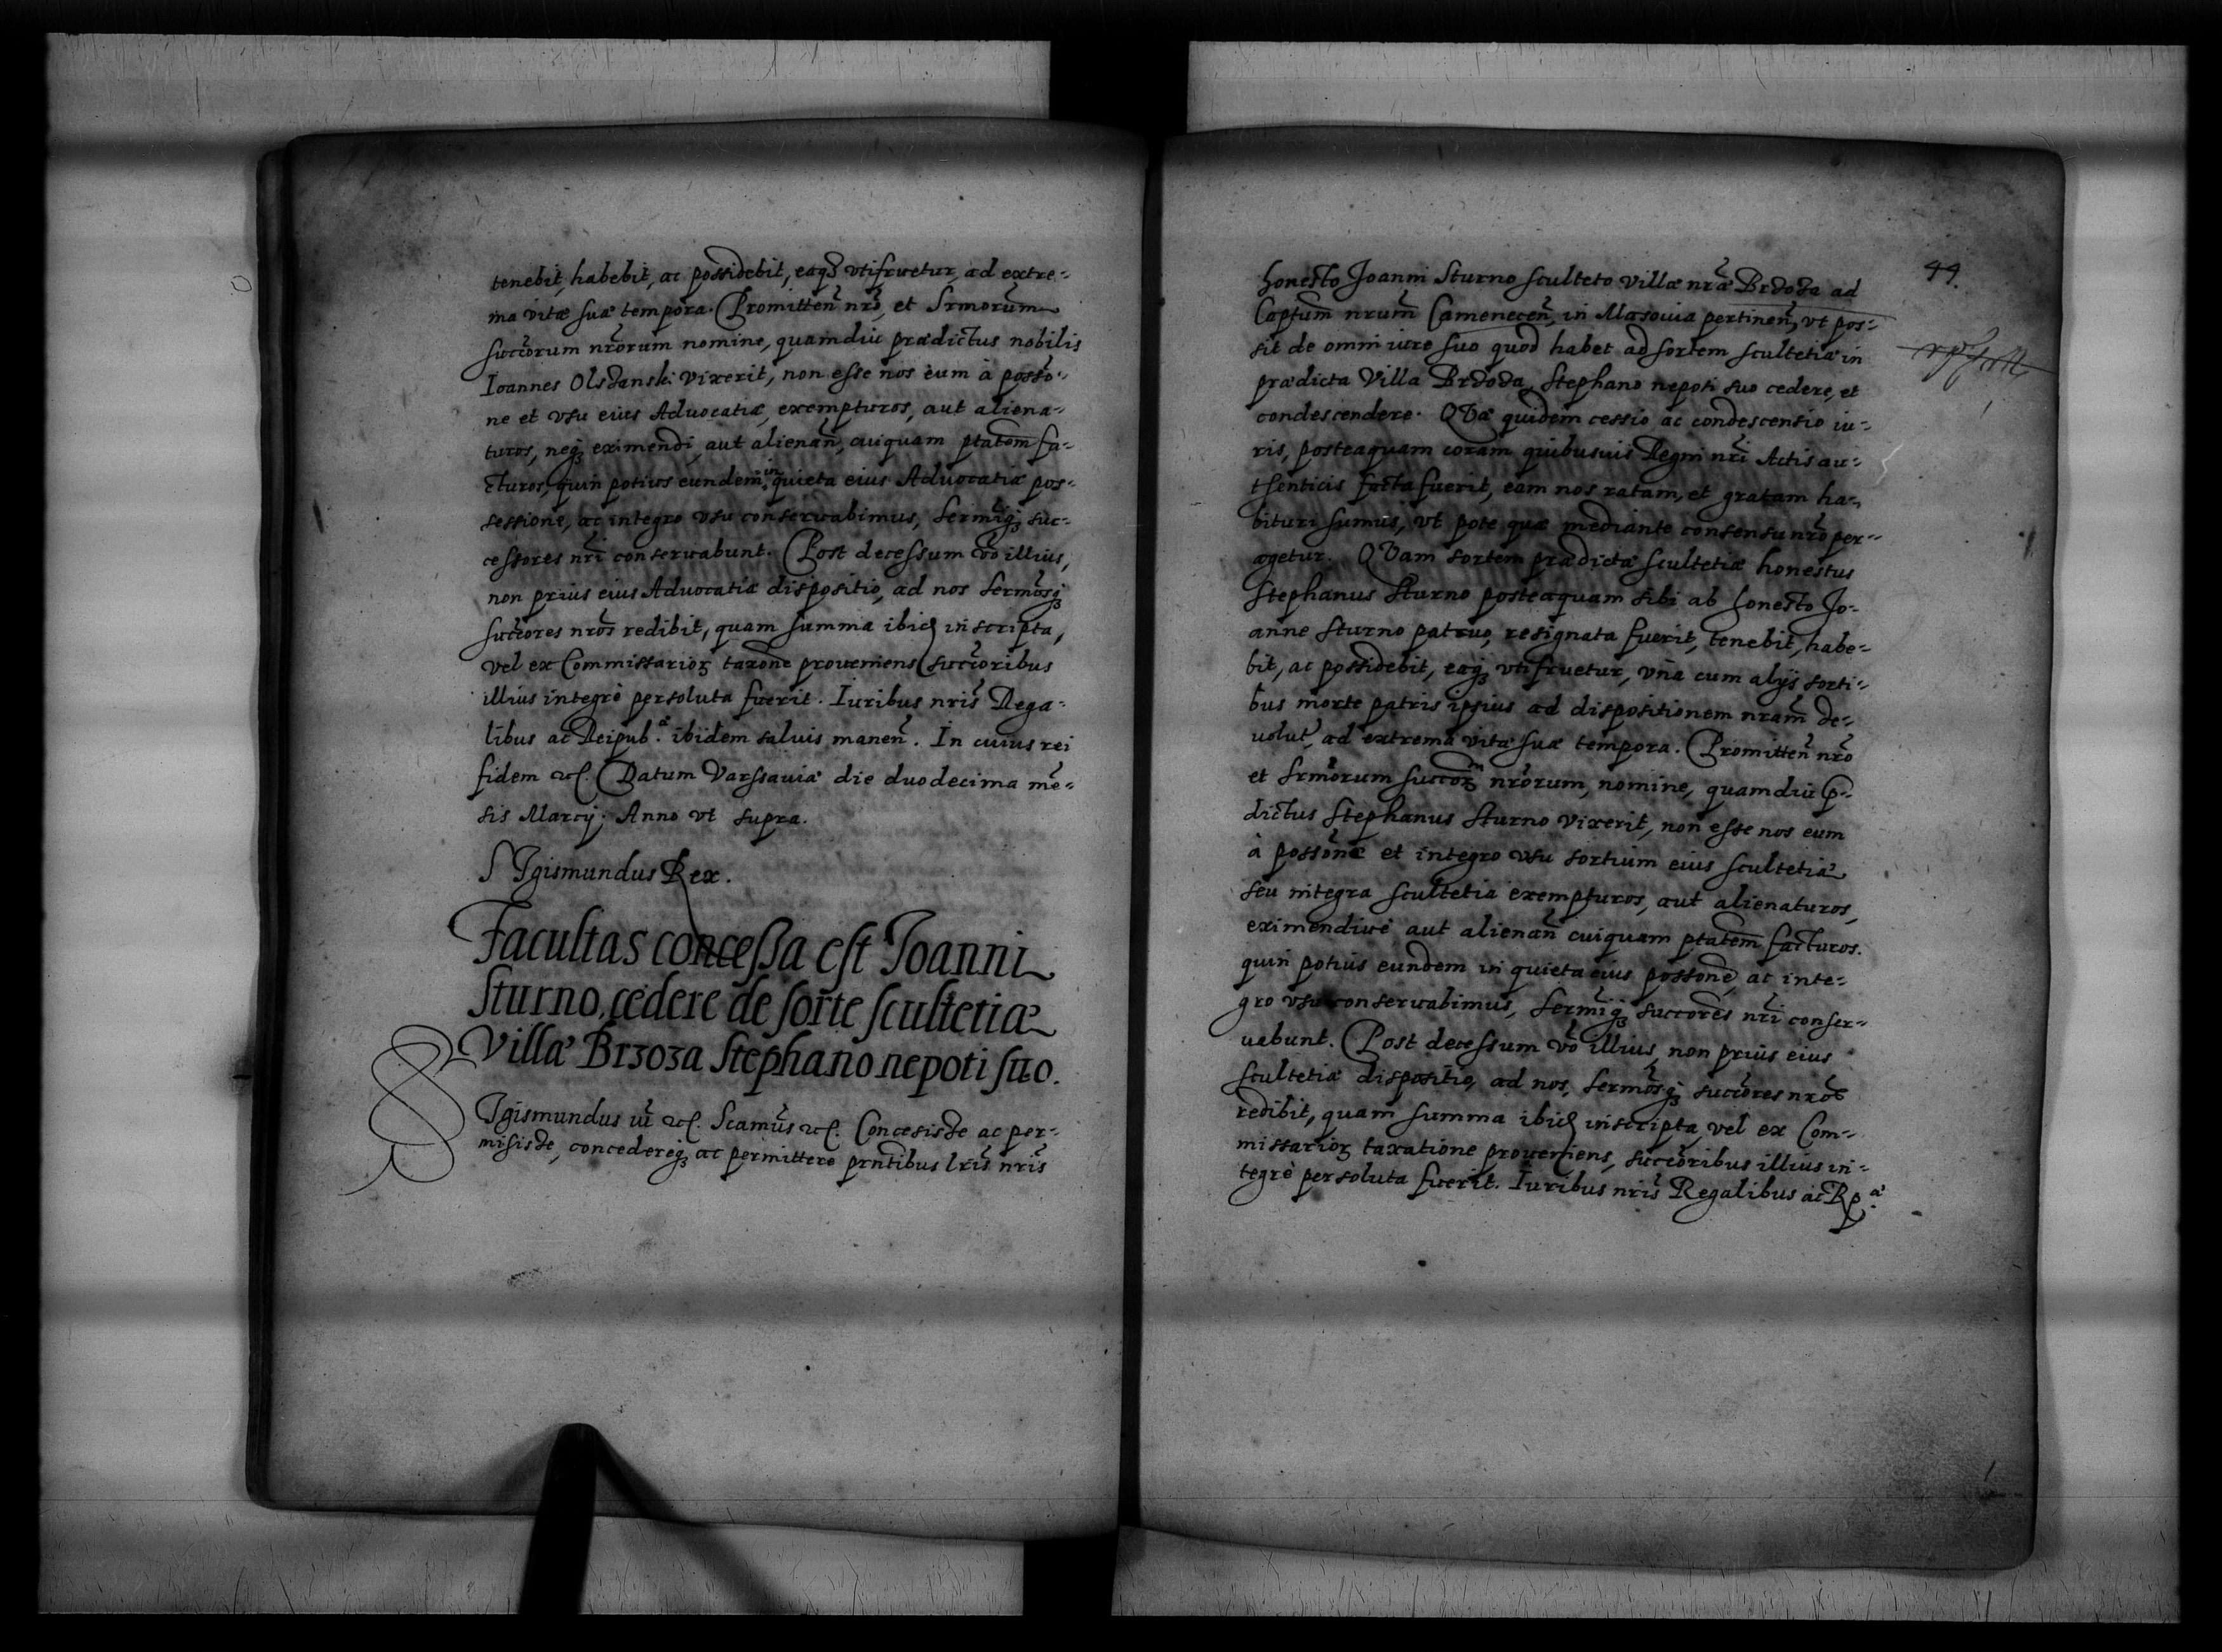 tenebit, habebit, ac possidebit, eaq3 vtifruetur, ad extre-
ma vitæ suæ tempora. Promitteñ nrõ, et Srmorum
succorum nrorum nomine, quamdiu prædictus nobilis
Ioannes Olszanski vixerit, non esse nos eum à posso-
ne et vsu eius Aduocatiæ, exempturos, aut aliena-
turos, neq3 eximendi, aut alienañ, cuiquam ptatem fa-
cturos, quin potius eundem in quieta eius Aduocatiæ pos-
sessione, ac integro vsu conseruabimus, Sermiq3 suc-
cessores nri conseruabunt. Post decessum vo illius,
non prius eius Aduocatiæ dispositio, ad nos Sermosq3
succores nros redibit, quam summa ibid inscripta,
vel ex Commissarior3 taxone proueniens succoribus
illius integrè persoluta fuerit. Iuribus nris Rega-
libus ac Reipub.æ ibidem saluis maneñ. In cuius rei
fidem etc. Datum Varssauiæ die duodecima mẽ-
sis Marcij. Anno vt supra.
SIgismundus Rex.
Facultas concessa est Joanni
Sturno, cedere de sorte scultetiæ
Villæ Brzoza Stephano nepoti suo.
SIgismundus iii etc. Scamus etc. Concesisse ac per-
misisse, concedereq3 ac permittere prntibus lris nris
44.
honesto Joanni Sturno sculteto villæ nræ Brzoza ad
Captum nrum Cameneceñ, in Masouia pertineñ, vt pos-
sit de omni iure suo quod habet ad sortem scultetiæ in
prædicta Villa Brzoza, Stephano nepoti suo cedere, et
condescendere. QVæ quidem cessio ac condescensio iu-
ris, posteaquam coram quibusuis Regni nri Actis au-
thenticis facta fuerit, eam nos ratam, et gratam ha-
bituri sumus, vt pote quæ mediante consensu nro per-
agetur. QVam sortem prædictæ scultetiæ honestus
Stephanus Sturno posteaquam sibi ab honesto Jo-
anne Sturno patruo, resignata fuerit, tenebit, habe-
bit, ac possidebit, eaq3 vtifruetur, vña cum alijs sorti-
bus morte patris ipsius ad dispositionem nram de-
uolut, ad extrema vitæ suæ tempora. Promitteñ nro
et Srmorum succor3 nrorum, nomine, quamdiu p-
dictus Stephanus Sturno vixerit, non esse nos eum
à possone et integro vsu sortium eius scultetiæ
seu integra scultetia exempturos, aut alienaturos,
eximendiue aut alienañ cuiquam ptatem facturos.
quin potius eundem in quieta eius possone, ac inte-
gro vsu conseruabimus, Sermiq3 succores nri conser-
uabunt. Post decessum vo illius, non prius eius
scultetiæ dispositio, ad nos, Sermosq3 succores nros
redibit, quam summa ibid inscripta, vel ex Com-
missarior3 taxatione proueniens, succoribus illius in-
tegrè persoluta fuerit. Iuribus nris Regalibus ac Rp.æ